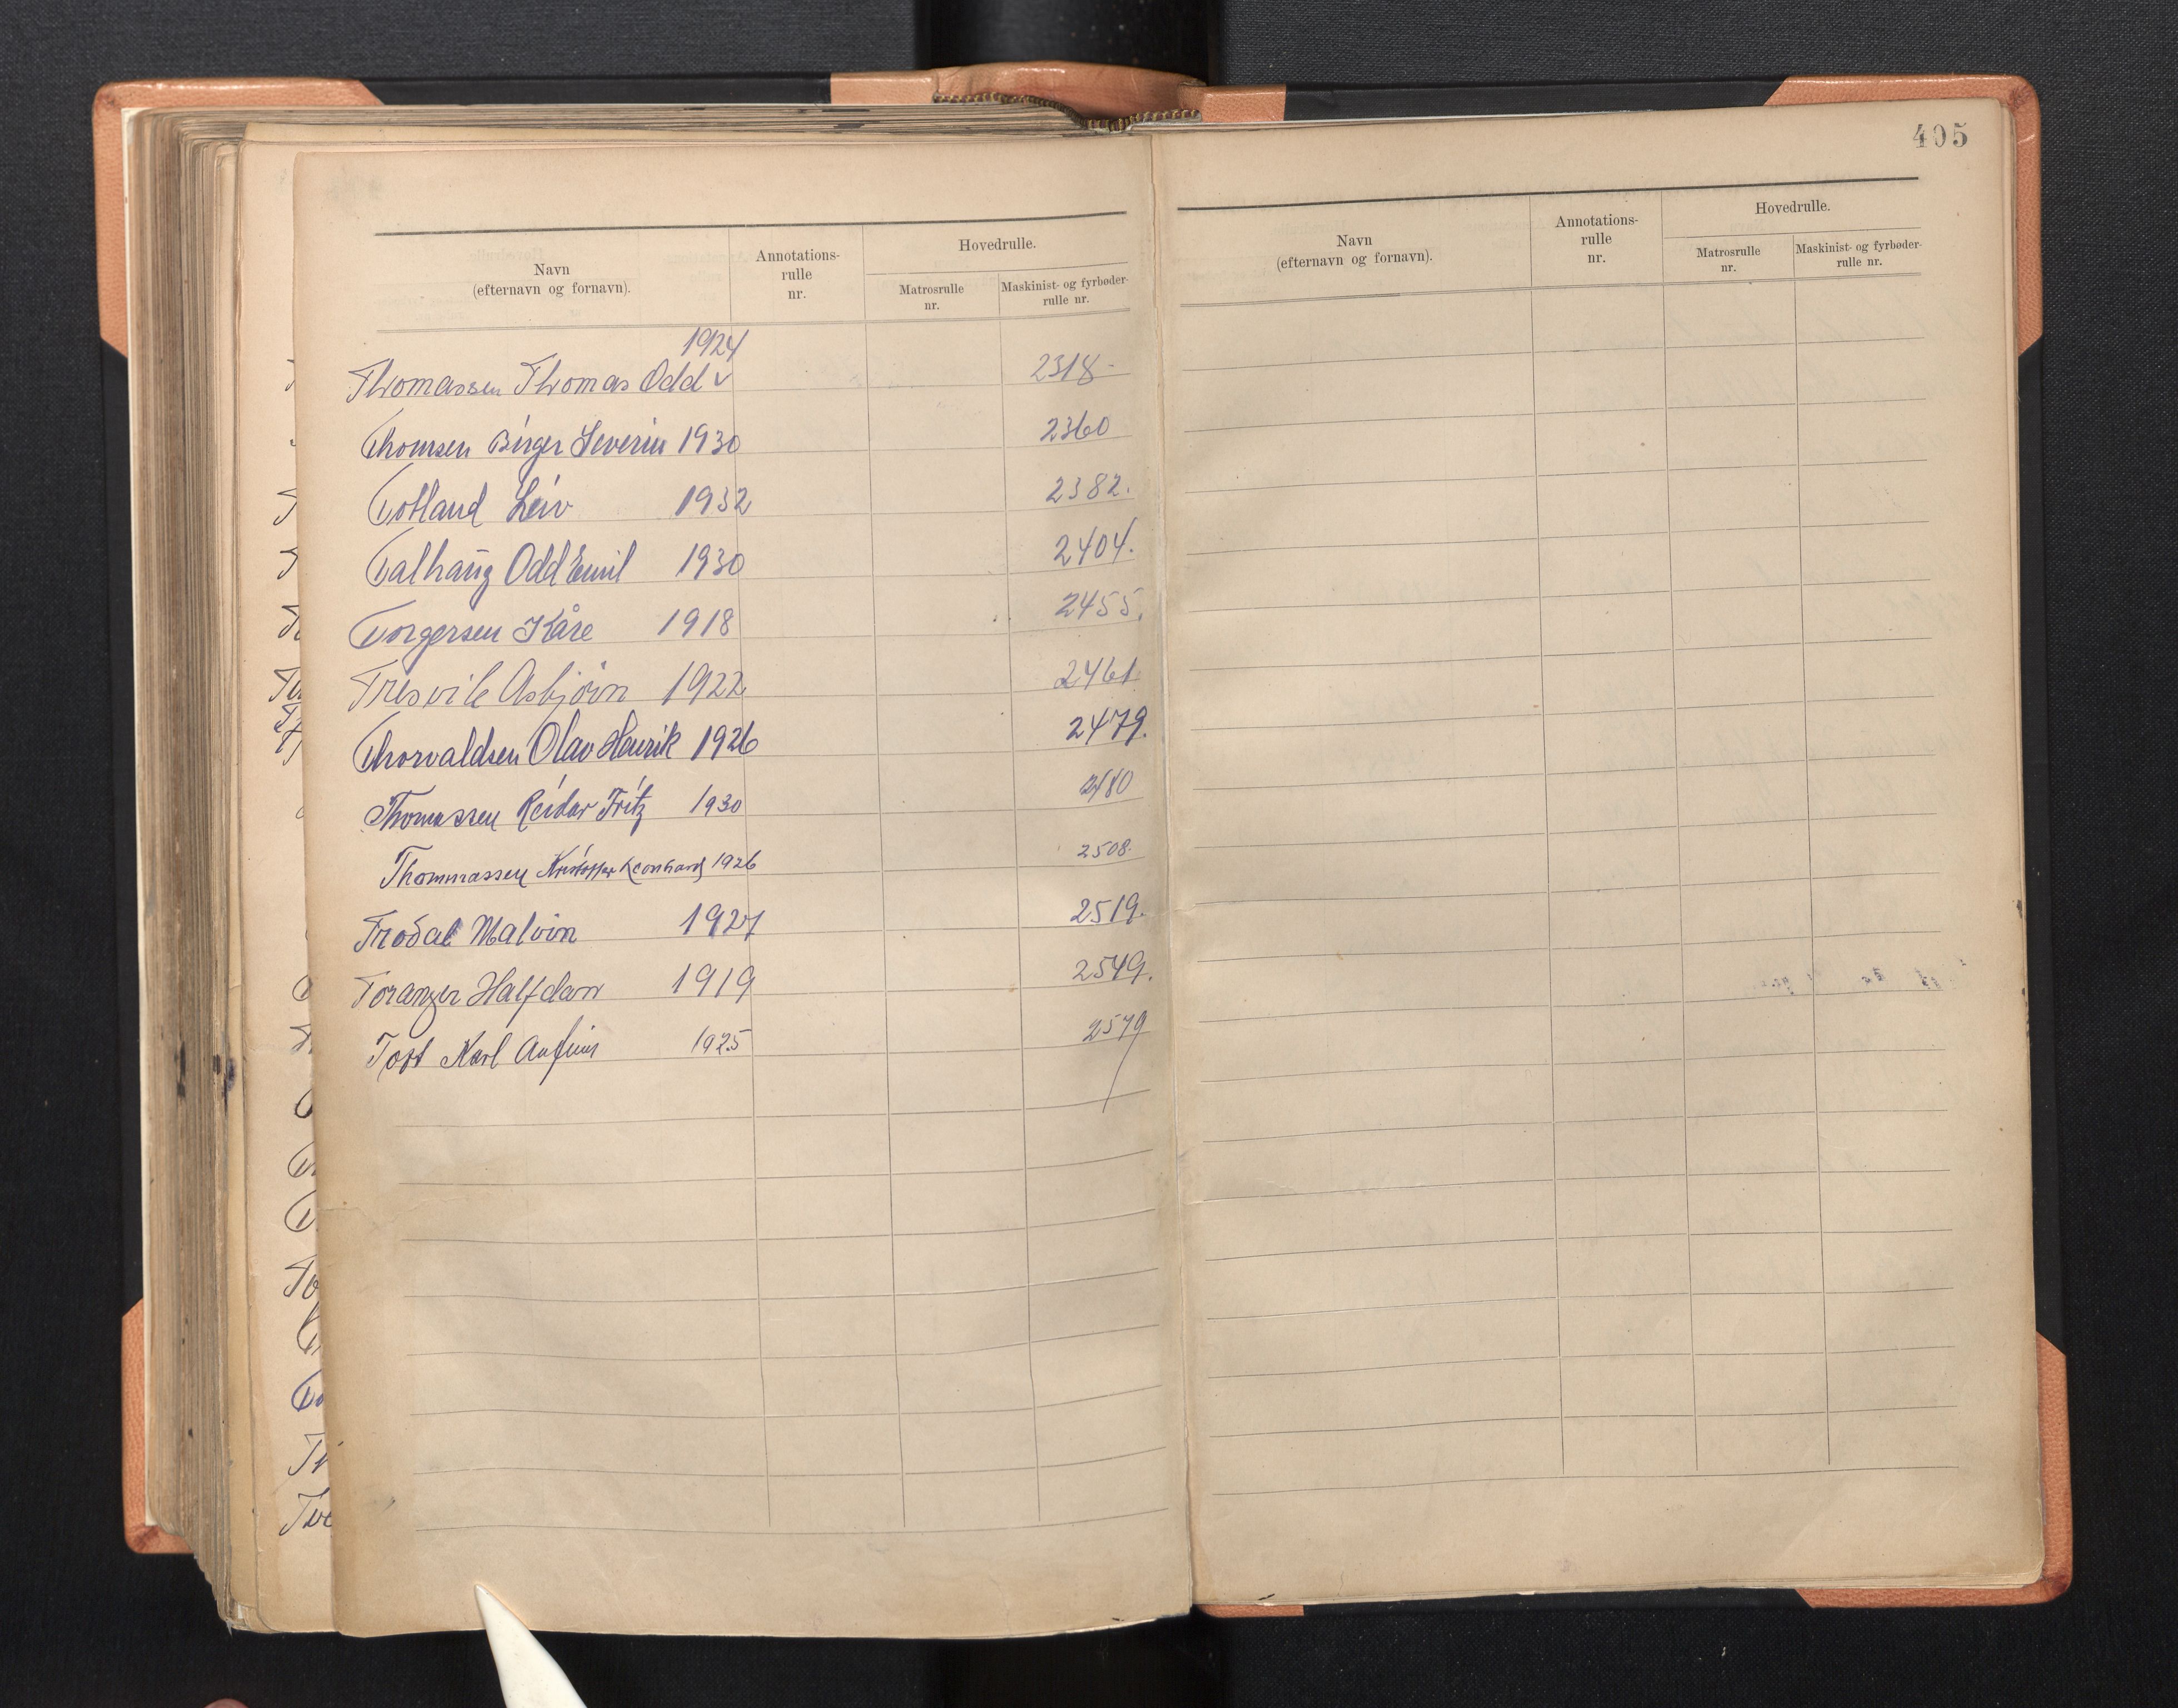 405
Navn
(efternavn og fornavn).
Annotations-
rulle
nr.
Hovedrulle.
Matrosrulle
nr.
Maskinist- og fyrbøder-
rulle nr.
1924
Thomassen Thomas Odd v 2318-
Thomsen Birger Severin 1930 2360
Totland Leiv 1932 2382.
Talhaug Odd Emil 1930 2404.
Torgersen Kåre 1918 2455.
Tresvik Asbjörn 1922 2461.
Thorvaldsen Olav Henrik 1926 2479.
Thomassen Reidar Fritz 1930 2480
Thommassen Kristoffer Leonhard 1926 2508.
Trodal Malvin 1927 2519.
Toranger Halfdan 1919 2549.
Toft Karl Anfinn 1925 2579
Navn
(efternavn og fornavn).
Annotations-
rulle
nr.
Hovedrulle.
Matrosrulle
nr.
Maskinist- og fyrbøder-
rulle nr.